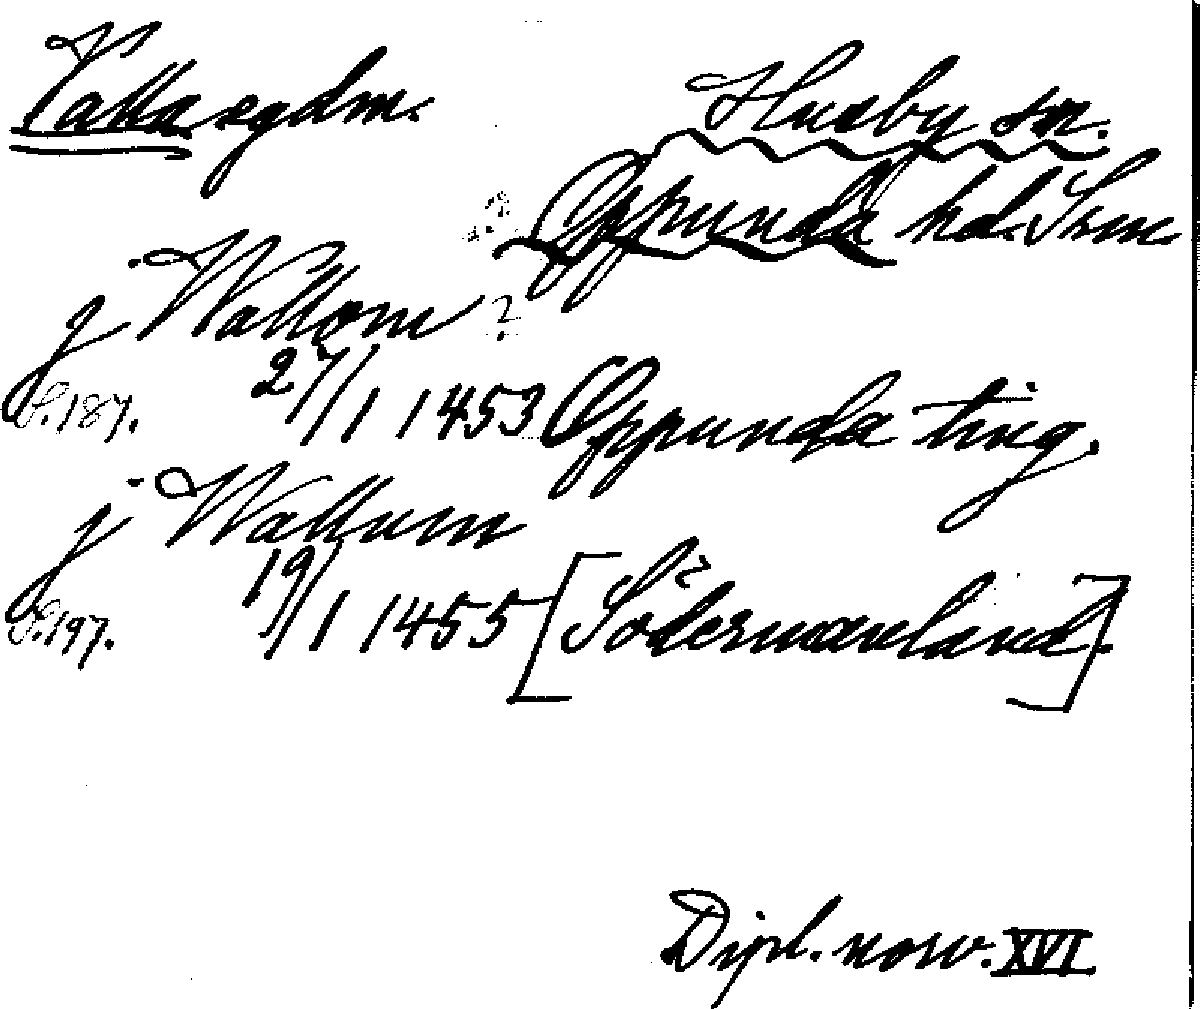 Valla egdm. Husby sn.
Oppunda hd. Srm.
j Wallom ?
S. 187. 27/1 1453 Oppunda ting.
j Wallum
S. 197. 19/1 1455 [Södermanland.]
Dipl. norv. XVI